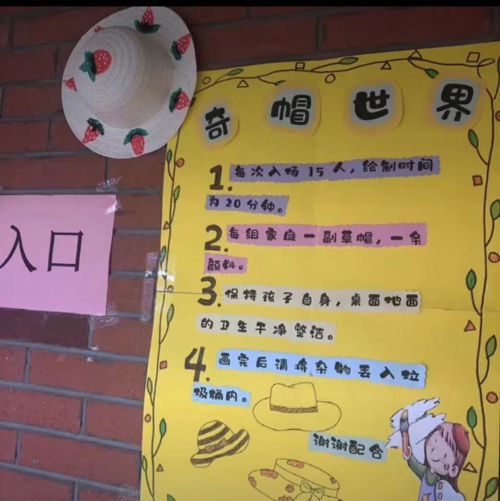 奇帽世界
1. 每次入场 15 人，绘制时间
为 20 分钟。
2. 每组家庭一副草帽，一条
颜料。
3. 保持孩子自身，桌面地面
的卫生干净整洁。
4. 画完后请将杂物丢入垃
圾桶内。
谢谢配合
入口